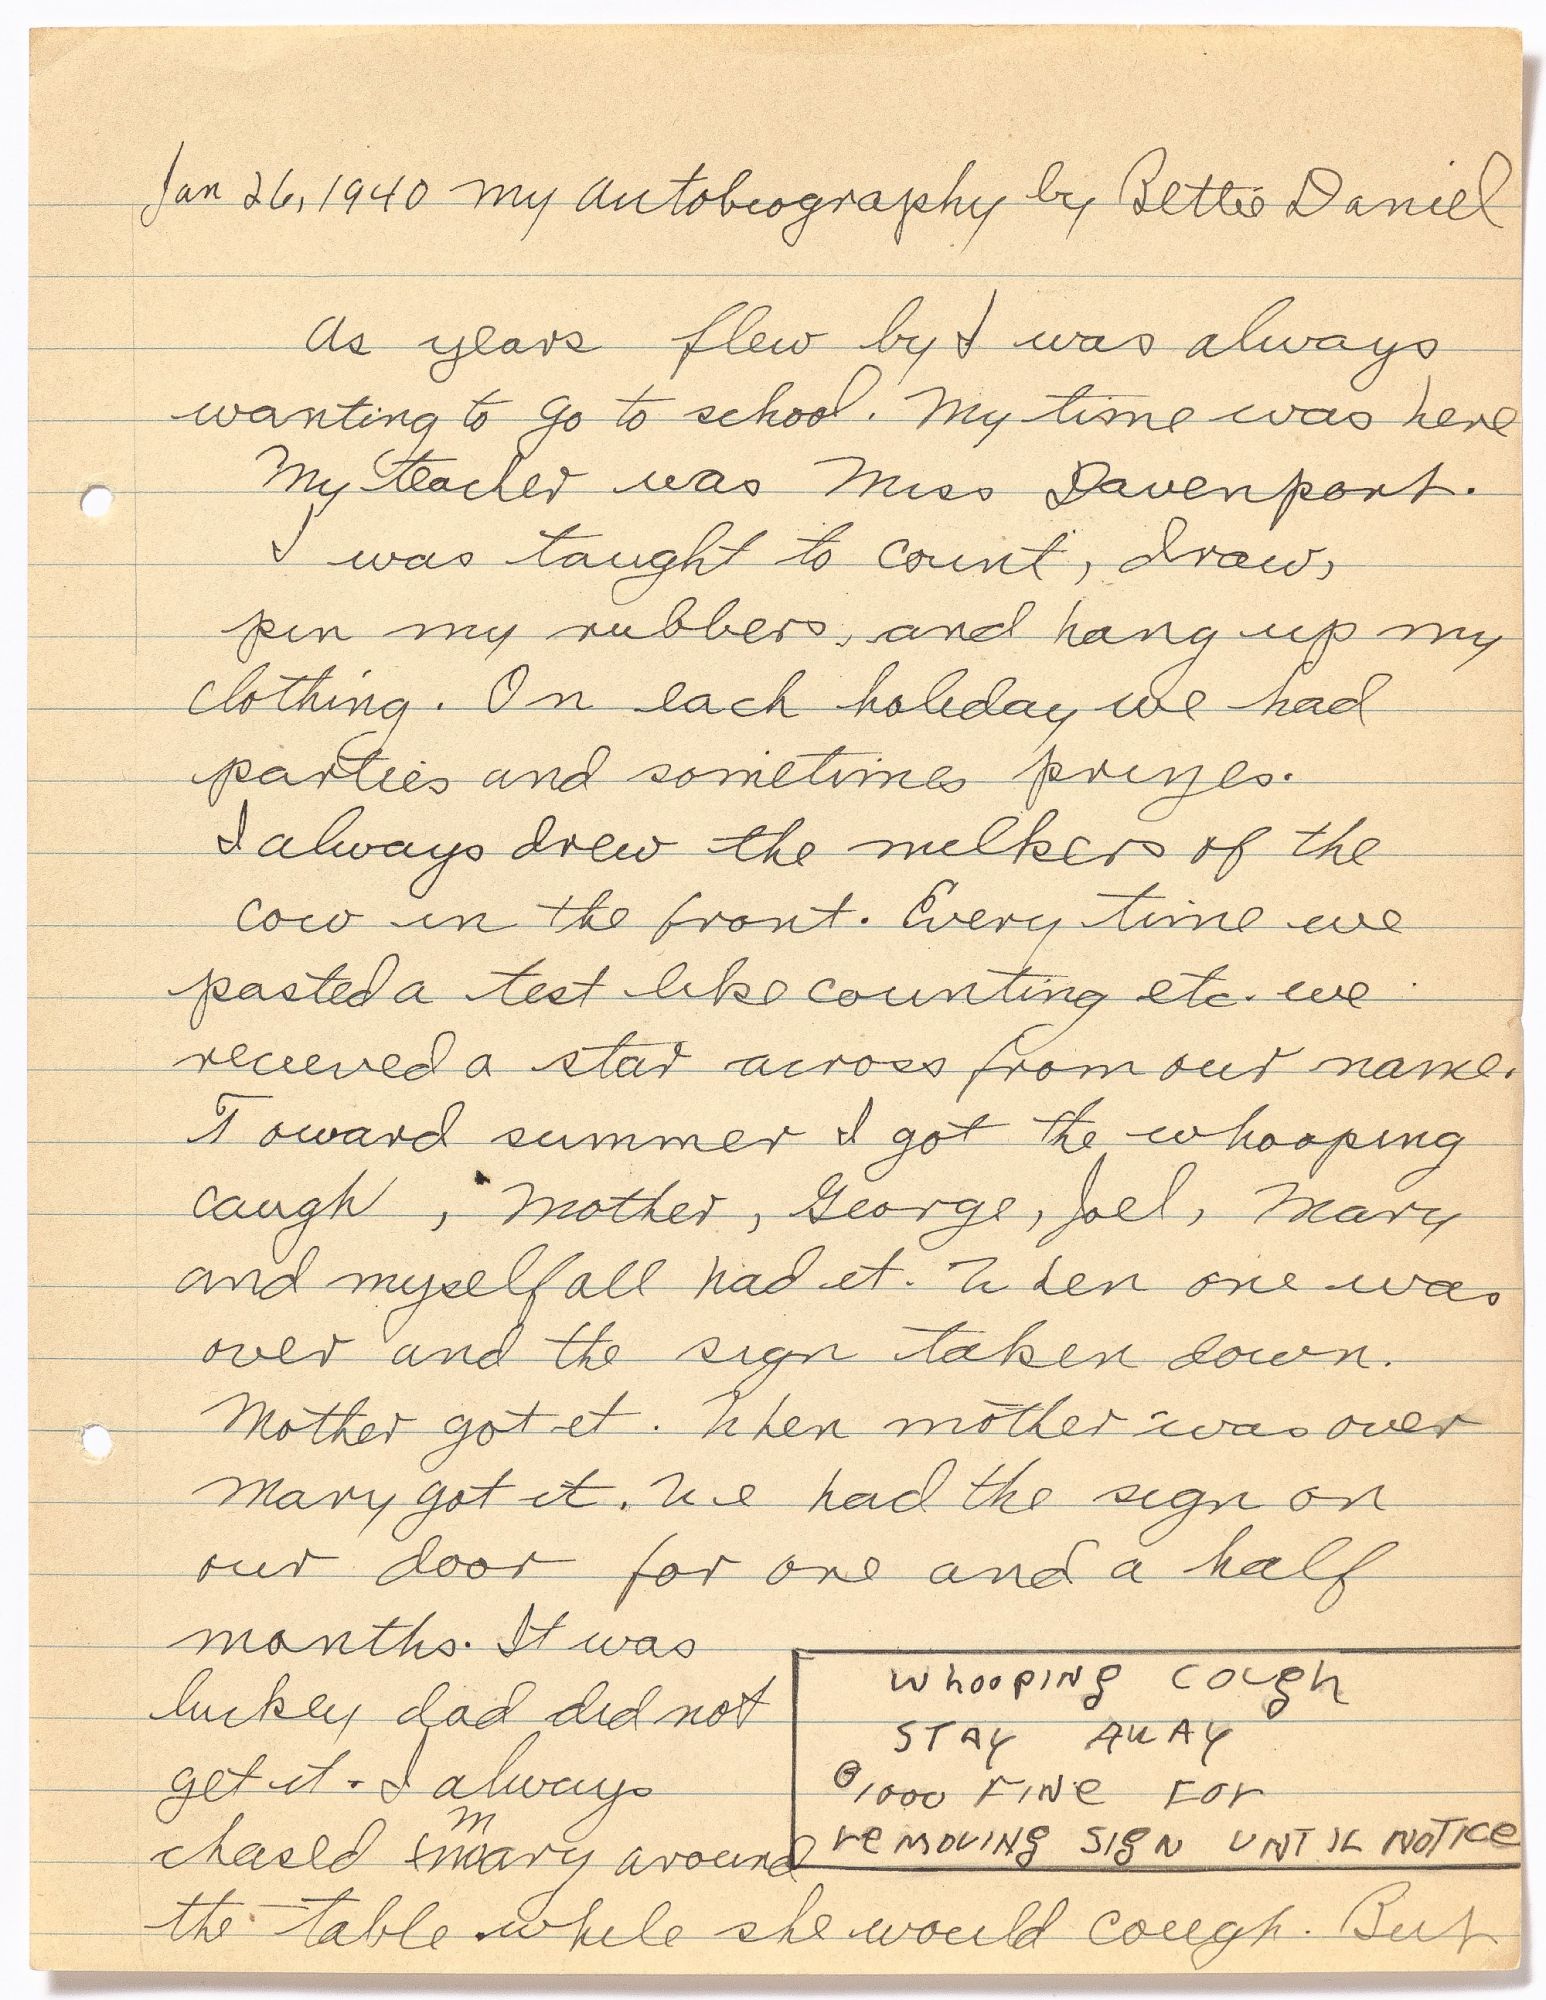 Jan 26, 1940 My Autobiography by Bettie Daniel
As years flew by I was always
wanting to go to school. My time was here
My teacher was Miss Davenport.
I was taught to count, draw,
pin my rubbers, and hang up my
clothing. On each holiday we had
parties and sometimes prizes.
I always drew the milkers of the
cow in the front. Every time we
pasted a test like counting etc. we
recieved a star across from our name.
Toward summer I got the whooping
caugh, Mother, George, Joel, Mary
and myself all had it. When one was
over and the sign taken down.
Mother got it. When mother was over
Mary got it. We had the sign on
our door for one and a half
months. It was
luckey dad did not
get it. I always
chased Mary around
the table while she would cough. But
Whooping Cough
Stay Away
$1000 Fine For
removing sign until notice